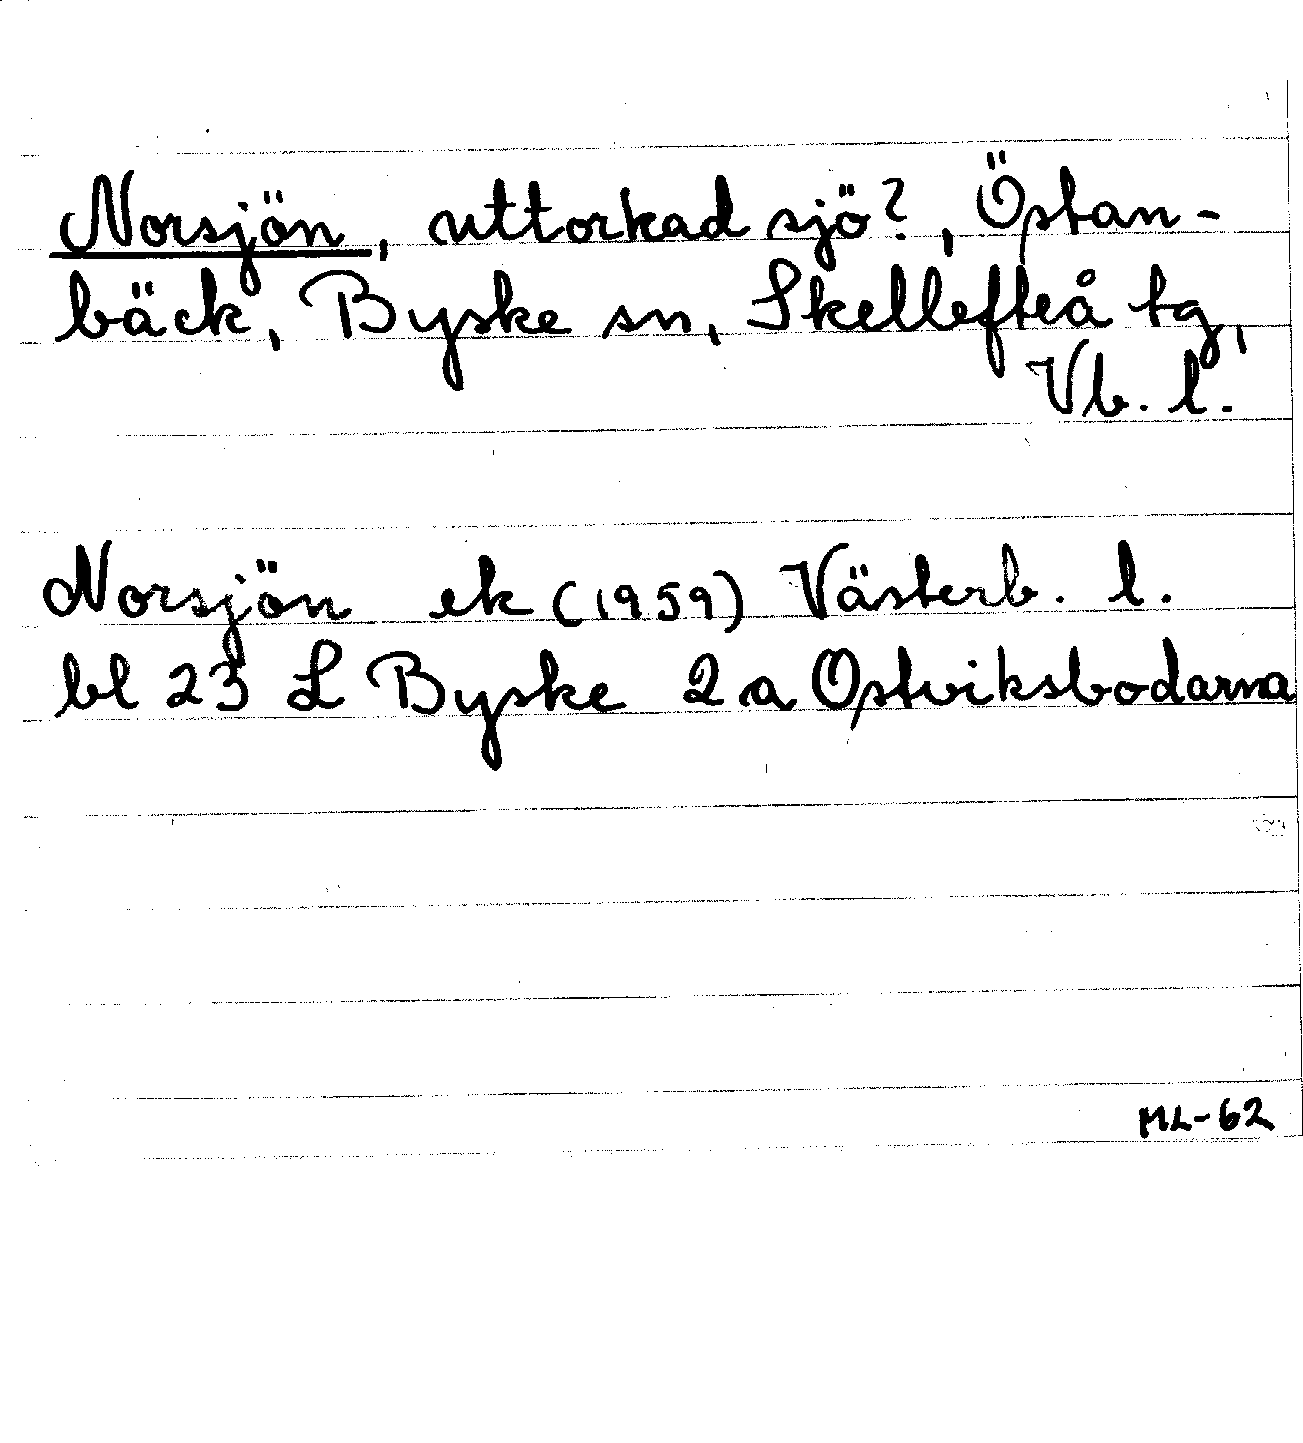 Norsjön, uttorkad sjö?, Östan-
bäck, Byske sn, Skellefteå tg,
Vb. l.
Norsjön ek (1959) Västerb. l.
bl 23 L Byske 2 a Ostviksbodarna
ML-62